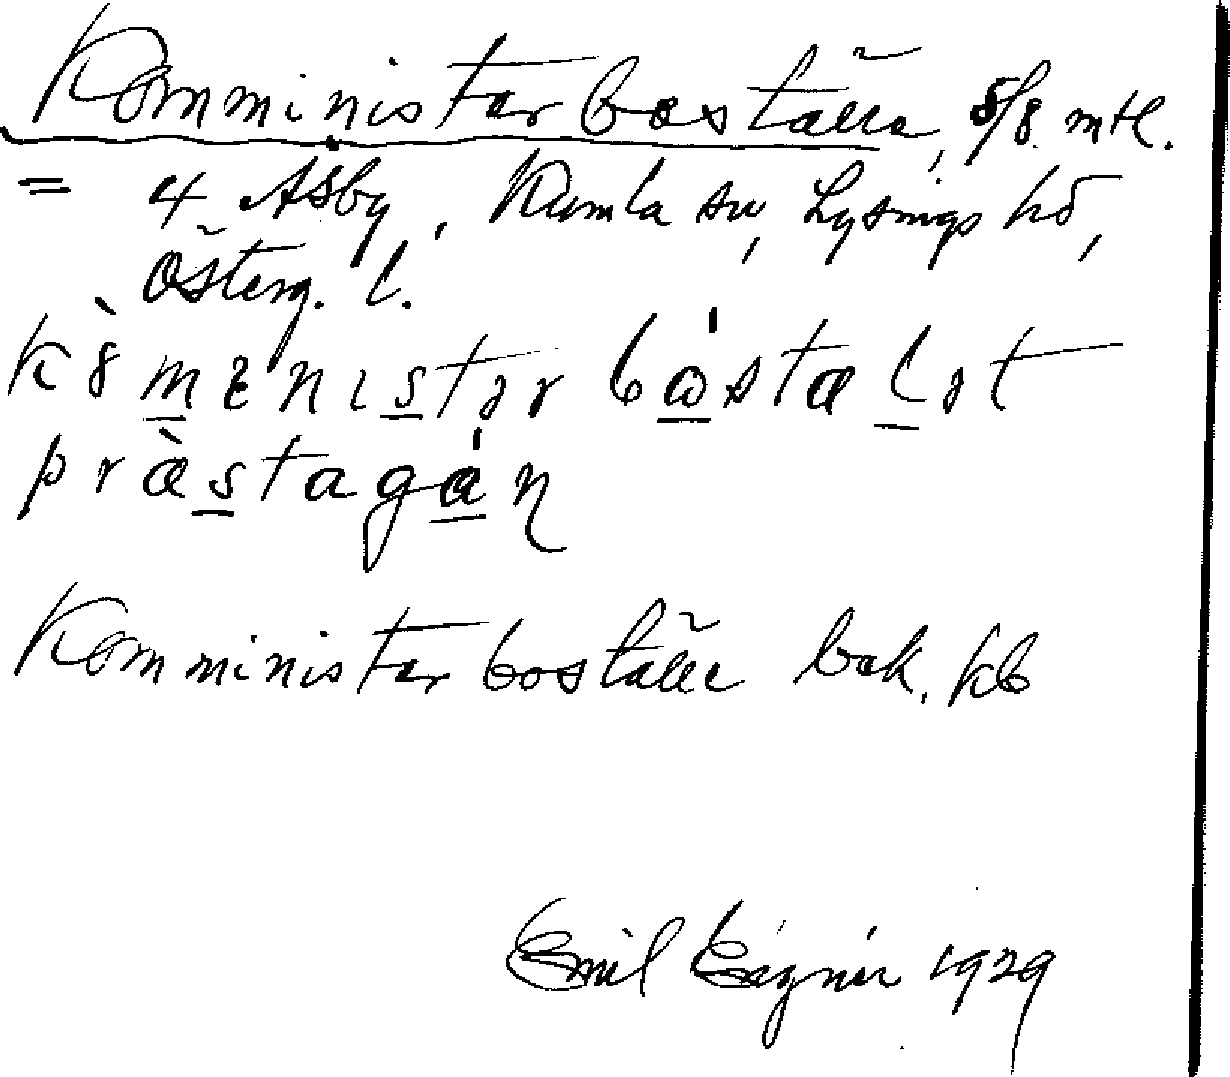 Komministerboställe, 5/8 mtl.
= 4 Åsby, Kumla sn, Lysings hd,
Österg. l.
kòmenistər bóstalət
præ̀stagán
Komministerboställe bek. kb
Emil 1929